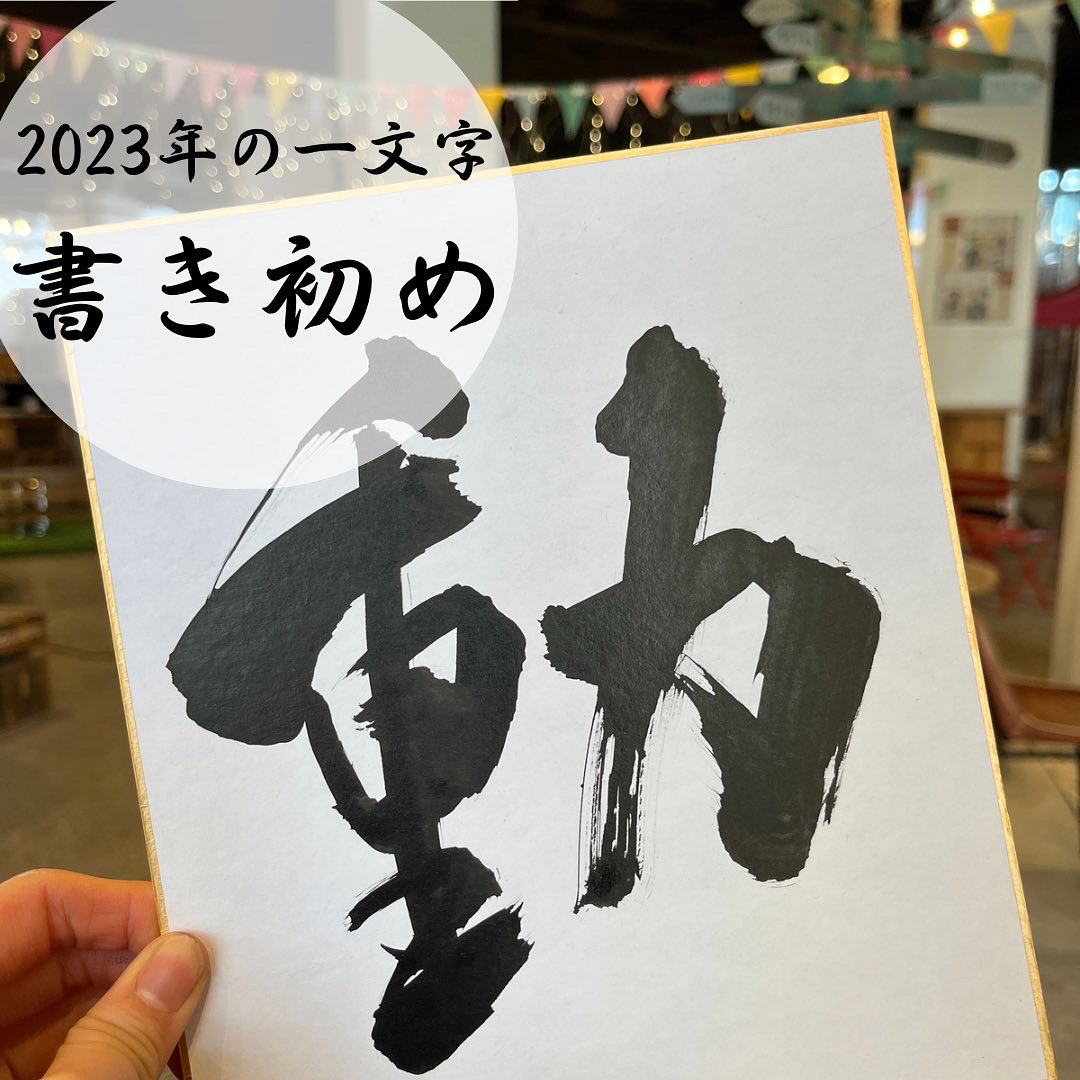 2023年の一文字
書き初め
動